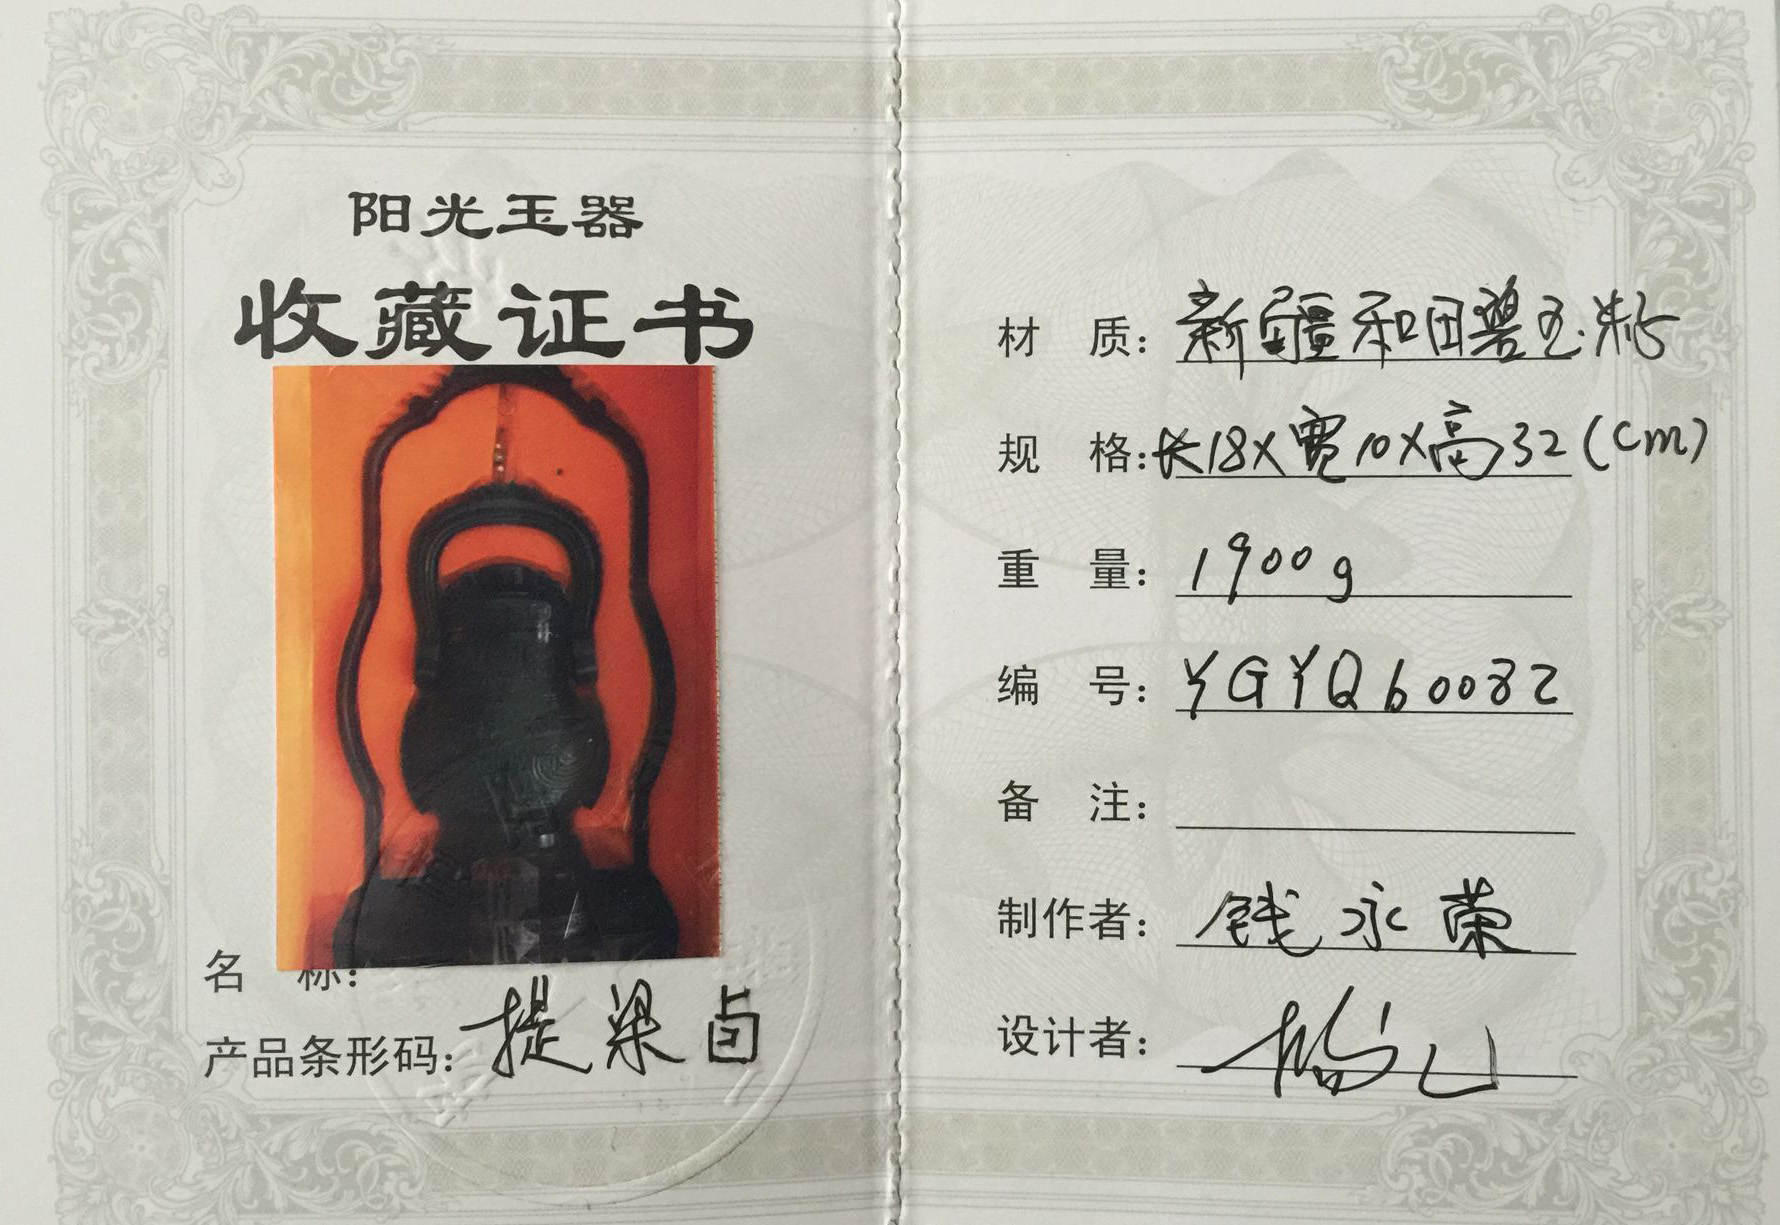 阳光玉器
收藏证书
名 称:
产品条形码: 提梁卣
材 质: 新疆和田碧玉
规 格: 长18X宽10X高32(cm)
重 量: 1900g
编 号: YGYQ60082
备 注:
制作者: 钱永荣
设计者: